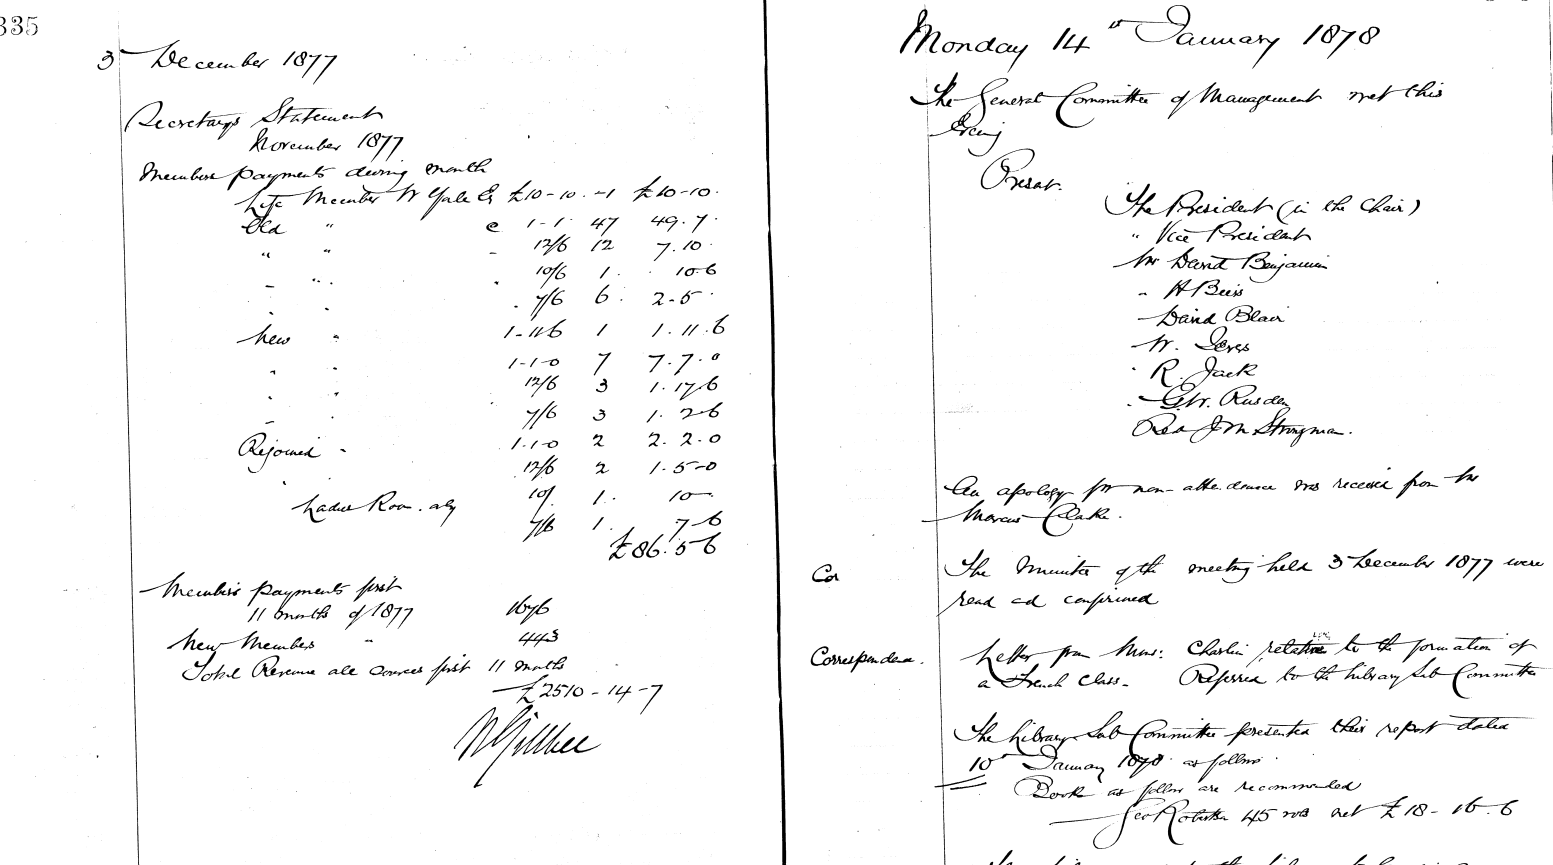 335
3 December 1877
Secretarys Statement
November 1877
Members payments during month
Life Member W Gale £10-10. -1 £10-10.
Old " @ 1-1. 47 49.7.
" " - 12/6 12 7.10.
- " . 10/6 1. 10 6
7/6 6. 2-5.
New " 1-11-6 1 1.11.6
" " 1-1-0 7 7.7.0
" " 12/6 3 1.17.6
7/6 3 1.2.6
Rejoined - 1.1.0 2 2.2.0
12/6 2 1.5-0
Ladies Room only 10/ 1. 10-
7/6 1. 7-6
£86.5 6
Members payments first
11 months of 1877 1676
New Members " 443
Total Revenue all sources first 11 months
£2510-14-7
Monday 14th January 1878
The General Committee of Management met this
Evening
Present.
The President (in the Chair)
" Vice President
Mr David Benjamin
" H Beers
David Blair
W.
" R. Jack
" G.W. Rusden
Rev J M Strongman.
An apology for non-attendance was received from Mr
Marcus Clarke.
Con
The Minutes of the meeting held 3 December 1877 were
read and confirmed
Correspondence.
Letter from Mons: Charlin relative to the formation of
a French Class. Referred to the Library Sub Committee
The Library Sub Committee presented their report dated
10th January 1878 as follows
Books as follows are recommended
Geo Robertson 45 vols net £18-16.6